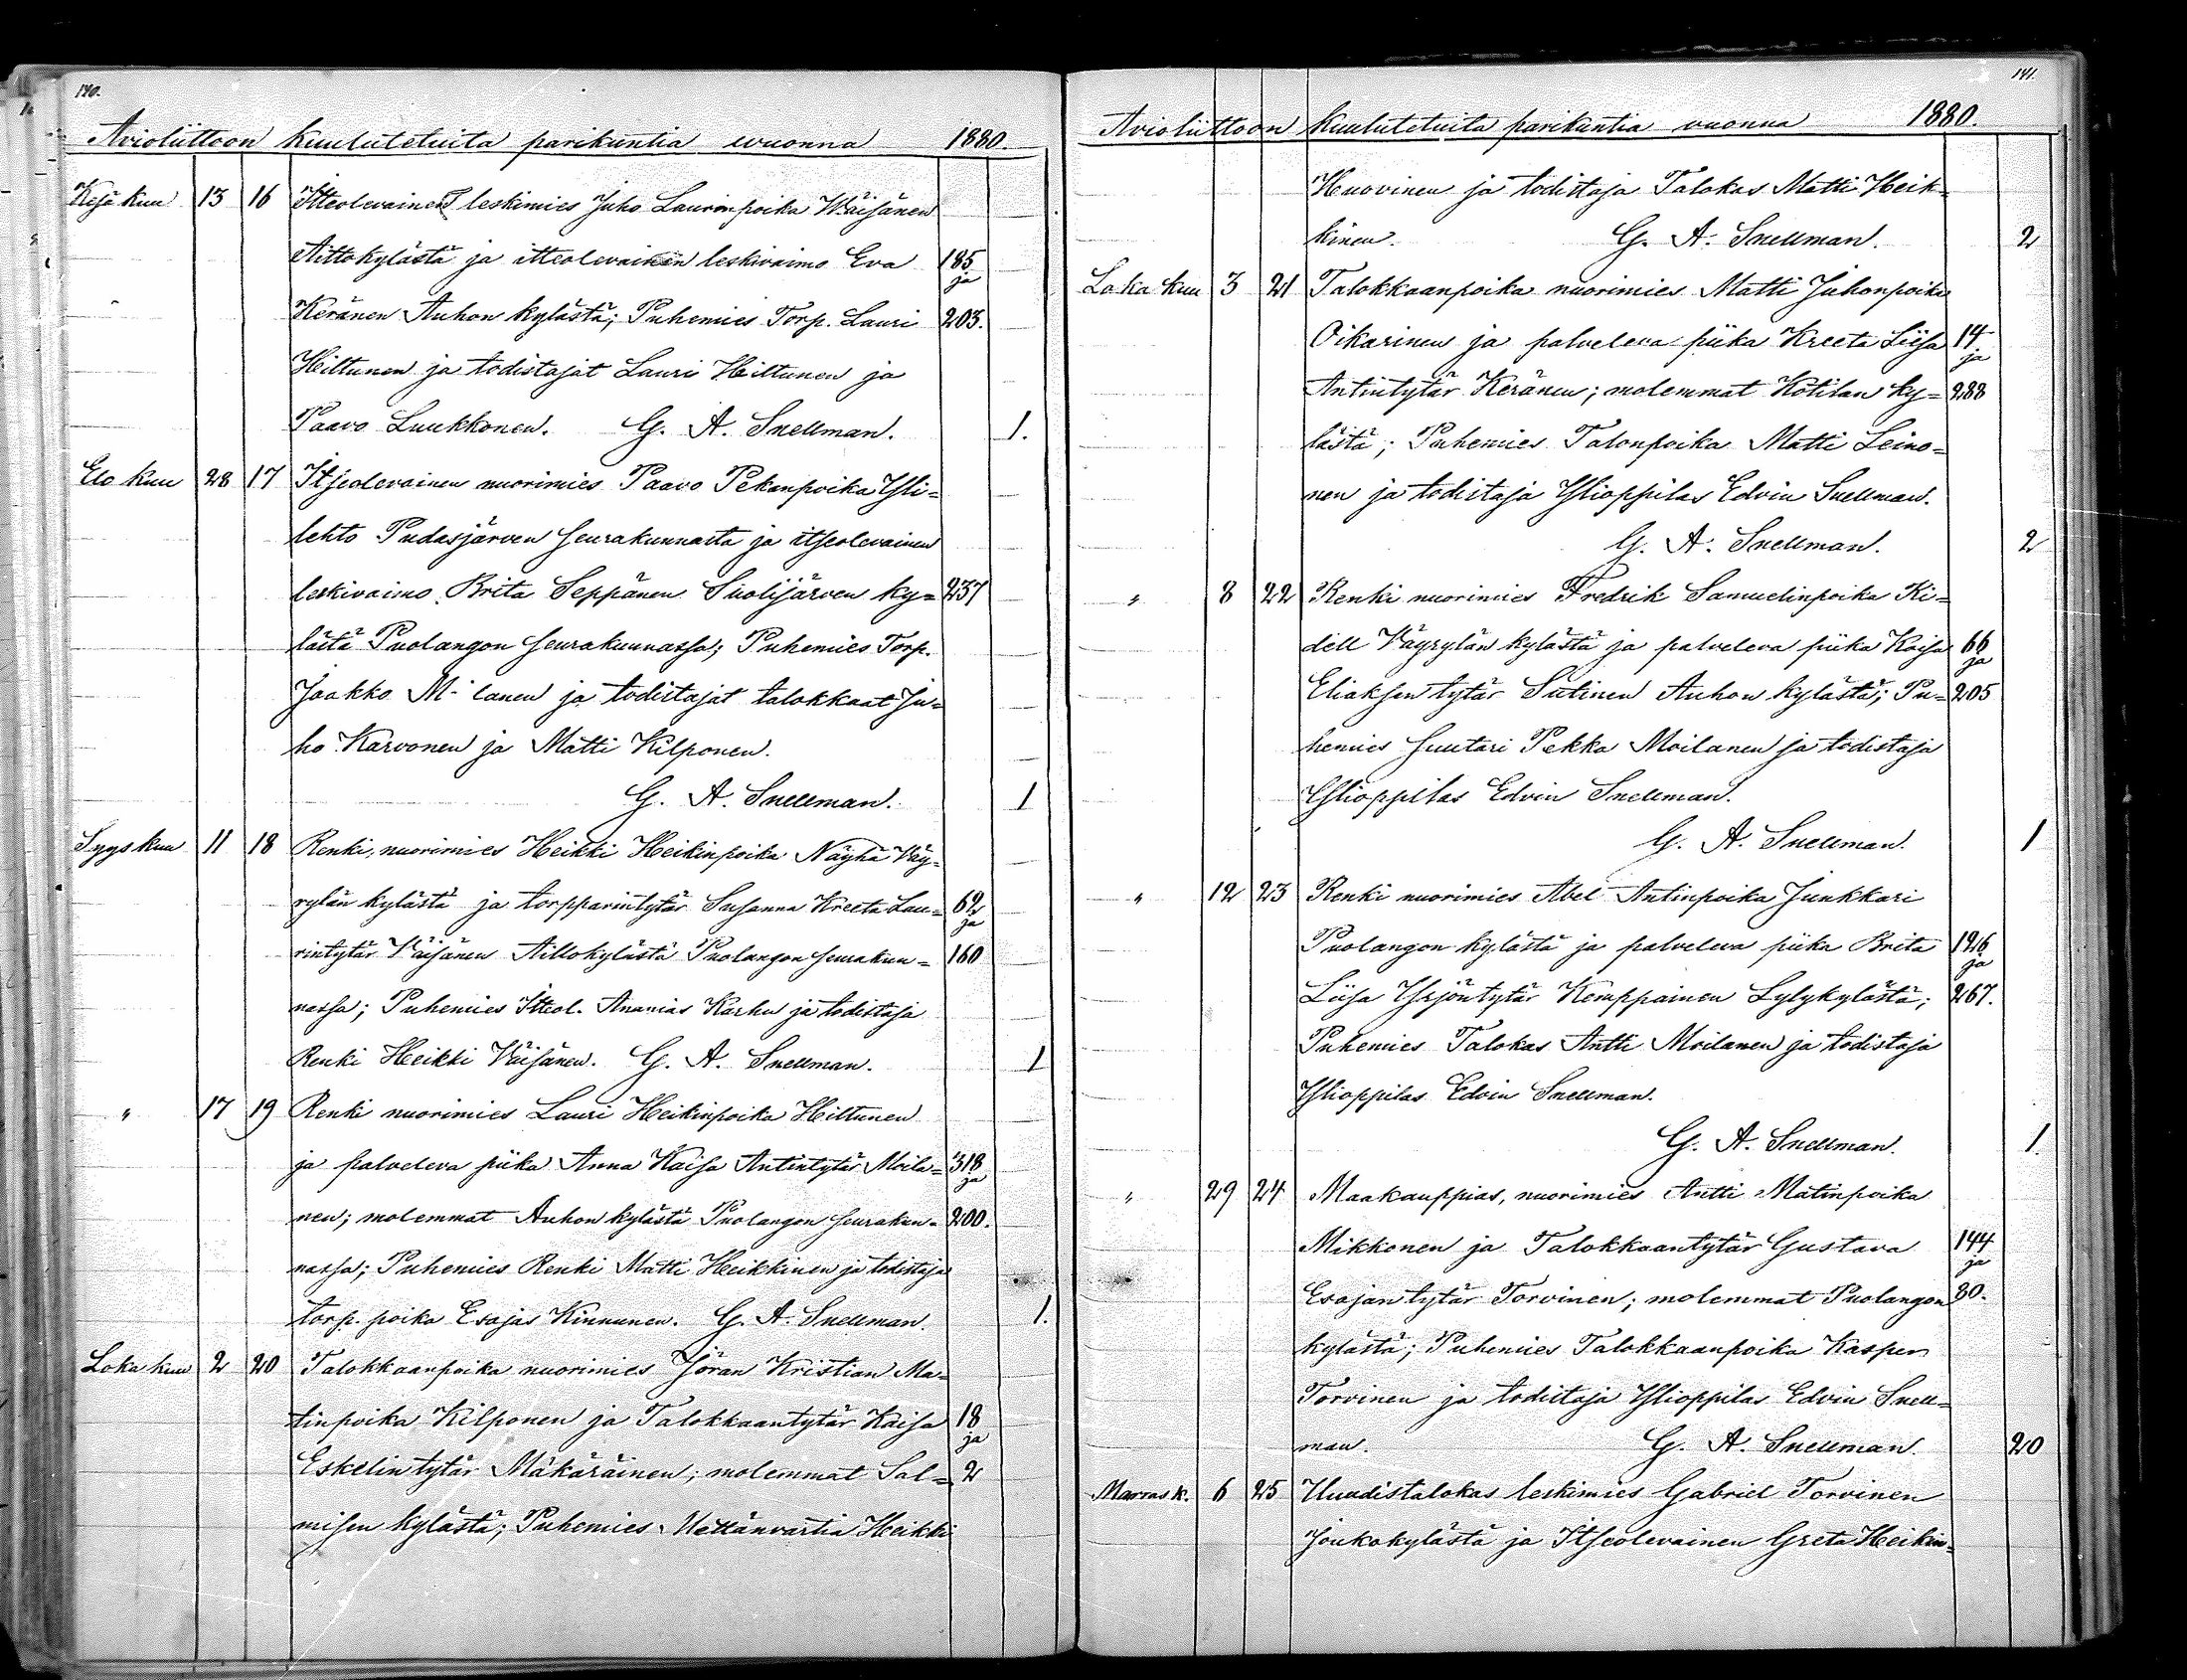 140.
Avioliittoon kuulutetuita parikuntia wuonna 1880.
Kesä kuu 13 16 Itteolevainen leskimies Juho Laurinpoika Wäisänen
Aittokylästä ja itteolevainen leskivaimo Eva 185 ja
Keränen Auhon kylästä; Puhemies Torp. Lauri 203.
Hiltunen ja todistajat Lauri Hiltunen ja
Paavo Luukkonen. G. A. Snellman. 1.
Elo kuu 28 17 Itseolevainen nuorimies Paavo Pekanpoika Yli=
lehto Pudasjärven seurakunnasta ja itseolevainen
leskivaimo Brita Seppänen Suolijärven ky= 237
lästä Puolangon seurakunnassa; Puhemies Torp.
Jaakko M lanen ja todistajat talokkaat Ju=
ho Karvonen ja Matti Kilponen.
G. A. Snellman. 1
Syys kuu 11 18 Renki, nuorimies Heikki Heikinpoika Näyhä Väy=
rylän kylästä ja torpparintytär Susanna Kreeta Lau= 62 ja
rintytär Väisänen Aittokylästä Puolangon seurakun= 160
nassa; Puhemies Itteol. Ananias Karhu ja todistaja
Renki Heikki Väisänen. G. A. Snellman. 1
" 17 19 Renki nuorimies Lauri Heikinpoika Hiltunen
ja palveleva piika Anna Kaisa Antintytär Moila= 318 ja
nen; molemmat Auhon kylästä Puolangon seurakun= 200.
nassa; Puhemies Renki Matti Heikkinen ja todistaja
torp. poika Esajas Kinnunen. G. A. Snellman. 1.
Loka kuu 2 20 Talokkaanpoika nuorimies Jöran Kristian Ma=
tinpoika Kilponen ja Talokkaantytär Kaisa 18 ja
Eskelin tytär Mäkäräinen; molemmat Sal= 2
misen kylästä; Puhemies Mettänvartia Heikki
141.
Avioliittoon kuulutetuita parikuntia vuonna 1880.
Huovinen ja todistaja Talokas Matti Heik=
kinen. G. A. Snellman. 2
Loka kuu 3 21 Talokkaanpoika nuorimies Matti Juhonpoika
Oikarinen ja palveleva piika Kreeta Liisa 14 ja
Antintytär Keränen; molemmat Kotilan ky= 288
lästä; Puhemies Talonpoika Matti Leino=
nen ja todistaja Ylioppilas Edvin Snellman.
G. A. Snellman. 2
" 8 22 Renki nuorimies Fredrik Samuelinpoika Ki=
dell Väyrylän kylästä ja palveleva piika Kaisa 66 ja
Eliaksen tytär Sutinen Auhon kylästä; Pu= 205
hemies suutari Pekka Moilanen ja todistaja
Ylioppilas Edvin Snellman.
G. A. Snellman. 1
" 12 23 Renki nuorimies Abel Antinpoika Junkkari
Puolangon kylästä ja palveleva piika Brita 126 ja
Liisa Yrjöntytär Kemppainen Lylykylästä; 267.
Puhemies Talokas Antti Moilanen ja todistaja
Ylioppilas Edvin Snellman.
G. A. Snellman. 1.
" 29 24 Maakauppias, nuorimies Antti Matinpoika
Mikkonen ja Talokkaantytär Gustava 144 ja
Esajan tytär Torvinen; molemmat Puolangon 80.
kylästä; Puhemies Talokkaanpoika Kasper
Torvinen ja todistaja Ylioppilas Edvin Snell=
man. G. A. Snellman. 20
Marras k. 6 25 Uuudistalokas leskimies Gabriel Torvinen
Joukokylästä ja Itseolevainen Greta Heikin=